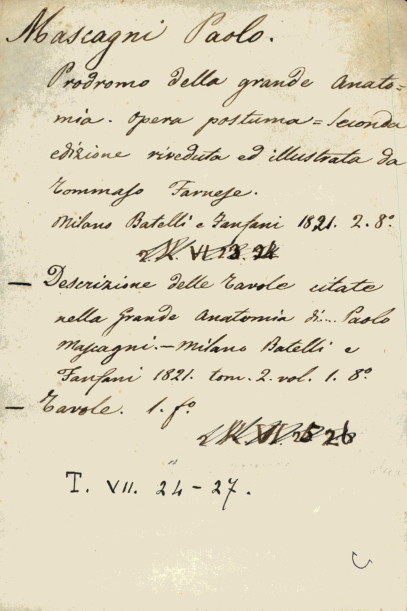 Mascagni Paolo.
Prodromo della grande Anato=
mia. opera postuma = Seconda
edizione riveduta ed illustrata da
Tommaso Farnese.
Milano Batelli e Fanfani 1821. 2. 8º
VI 23. 24
— Descrizione delle Tavole citate
nella Grande Anatomia di... Paolo
Mascagni. — Milano Batelli e
Fanfani 1821. tom. 2. vol. 1. 8º
— Tavole. 1. fº
25 26
T. VII. 24-27.